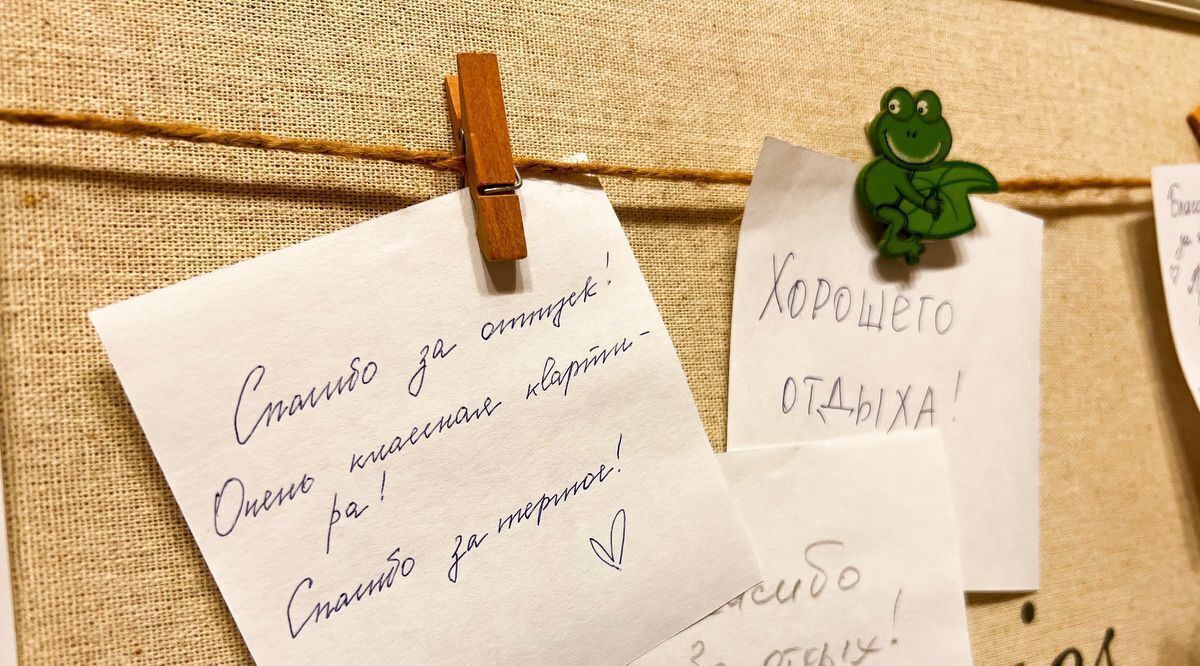 Спасибо за отпуск!
Очень классная кварти-
ра!
Спасибо за
ХОРОШЕГО
ОТДЫХА!
асибо
За отдых!
Благо
за